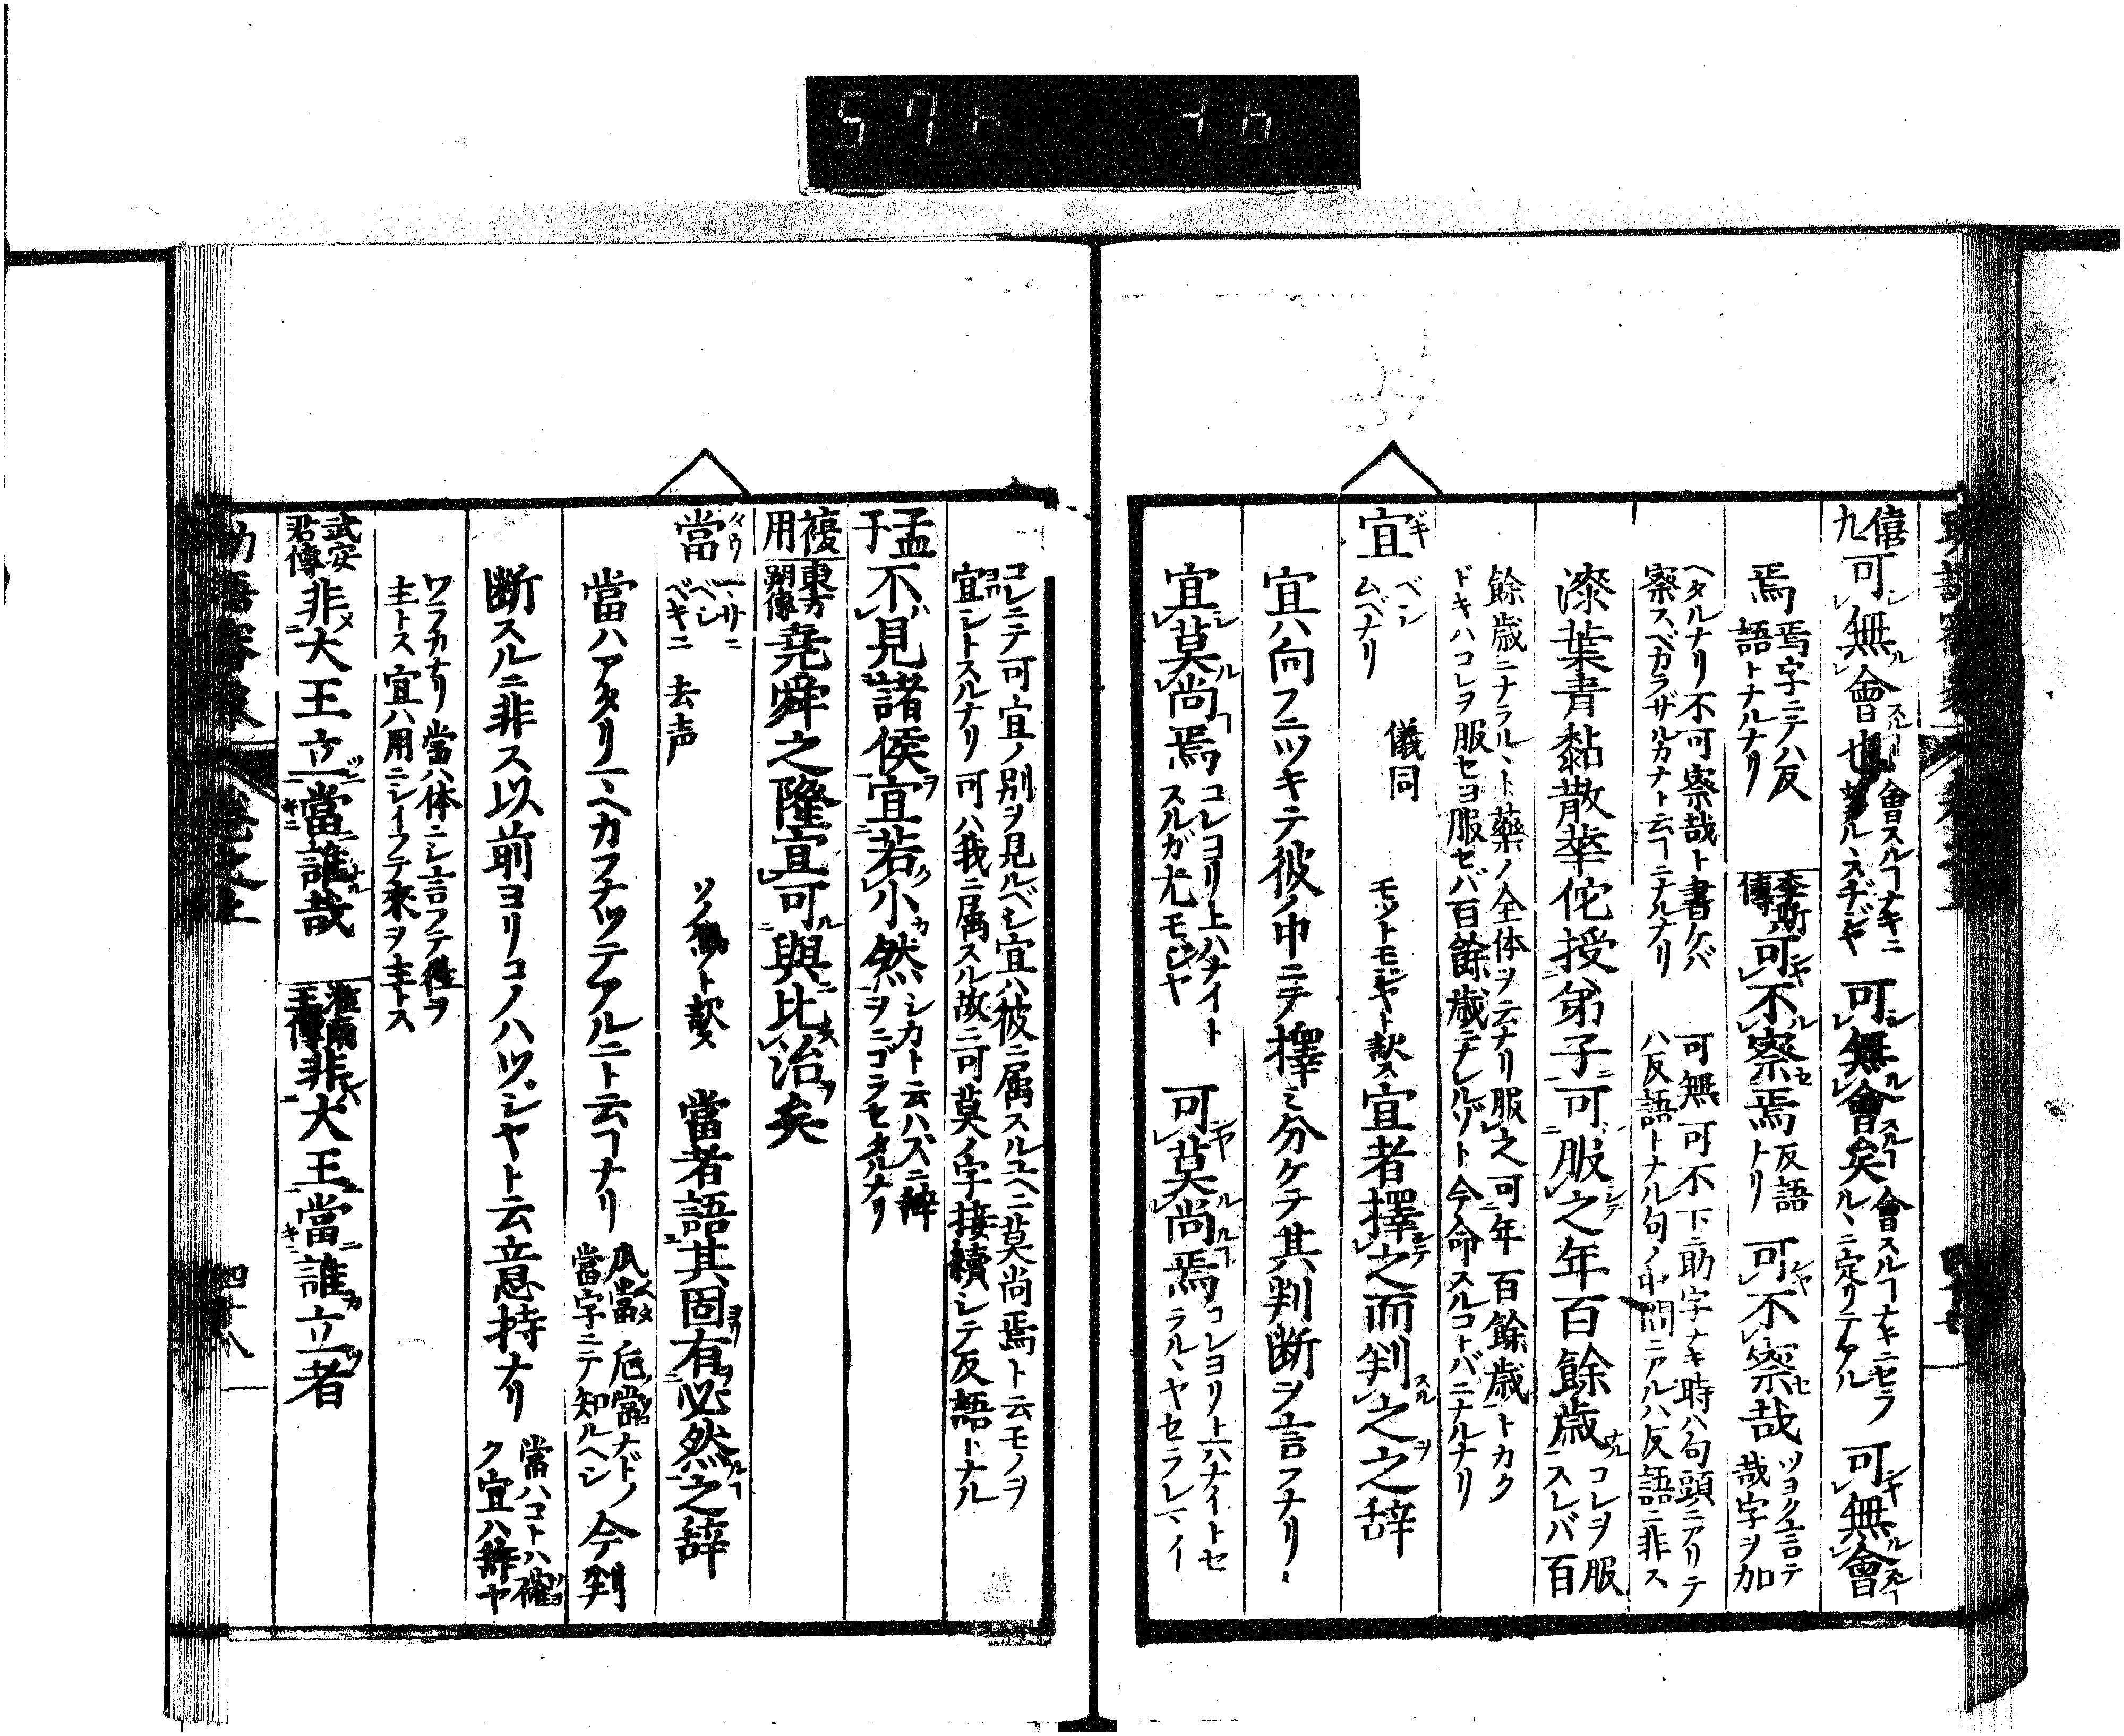 僖九可無會也 會スルヿナキニセラルヽスヂジヤ 可無會矣 會スルヿナキニセラルヽニ定リテアル 可無會
焉 焉字ニテハ反語トナルナリ 李斯傳可不察焉 反語トリ 可不察哉 ツヨク言テ哉字ヲ加
ヘタルナリ不可察哉ト書ケバ察スベカラザルカナト云ヿニナルナリ 可無可不下ニ助字ナキ時ハ句頭ニアリテハ反語トナル句ノ中間ニアルハ反語ニ非ス
漆葉青黏散華佗授弟子可服之年百餘歳 コレヲ服スレバ百
餘歳ニナラルヽト藥ノ全体ヲ云ナリ服之可年百餘歳トカクドキハコレヲ服セヨ服セバ百餘歳ニナレルゾト今命スルコトバニナルナリ
宜 ギ ベシ ムベナリ 儀同 モットモジヤト訳ス 宜者擇之而判之之辞
宜ハ向フニツキテ彼ノ中ニテ擇ミ分ケテ其判断ヲ言フナリ
宜莫尚焉 コレヨリ上ハナイトスルガ尤モジヤ 可莫尚焉 コレヨリ上ハナイトセラルヽヤセラレマイ
コレニテ可宜ノ別ヲ見ルベシ宜ハ彼ニ属スルユヘニ莫尚焉ト云モノヲ宜シトスルナリ可ハ我ニ属スル故ニ可莫ノ字接續シテ反語トナル
孟子不見諸侯宜若小然 シカト云ハズニ辞ヲニゴラセタルナリ
複用 東方朔傳堯舜之隆宜可與比治矣
當 タウ マサニベシ ベキニ 去声 ト訳ス 當者語其固有必然之辞
當ハアタリマヘカフナツテアルニト云ヿナリ 瓜當巵當ナドノ當字ニテ知ルヘシ 今判
断スルニ非ス以前ヨリコノハツジヤト云意持ナリ 當ハコトハ確ク宜ハ辞ヤ
ワラカナリ當ハ体ニシ言フテ徃ヲ主トス宜ハ用ニシイフテ来ヲ主トス
武安君傳非大王立當誰哉 淮南王傳非大王當誰立者